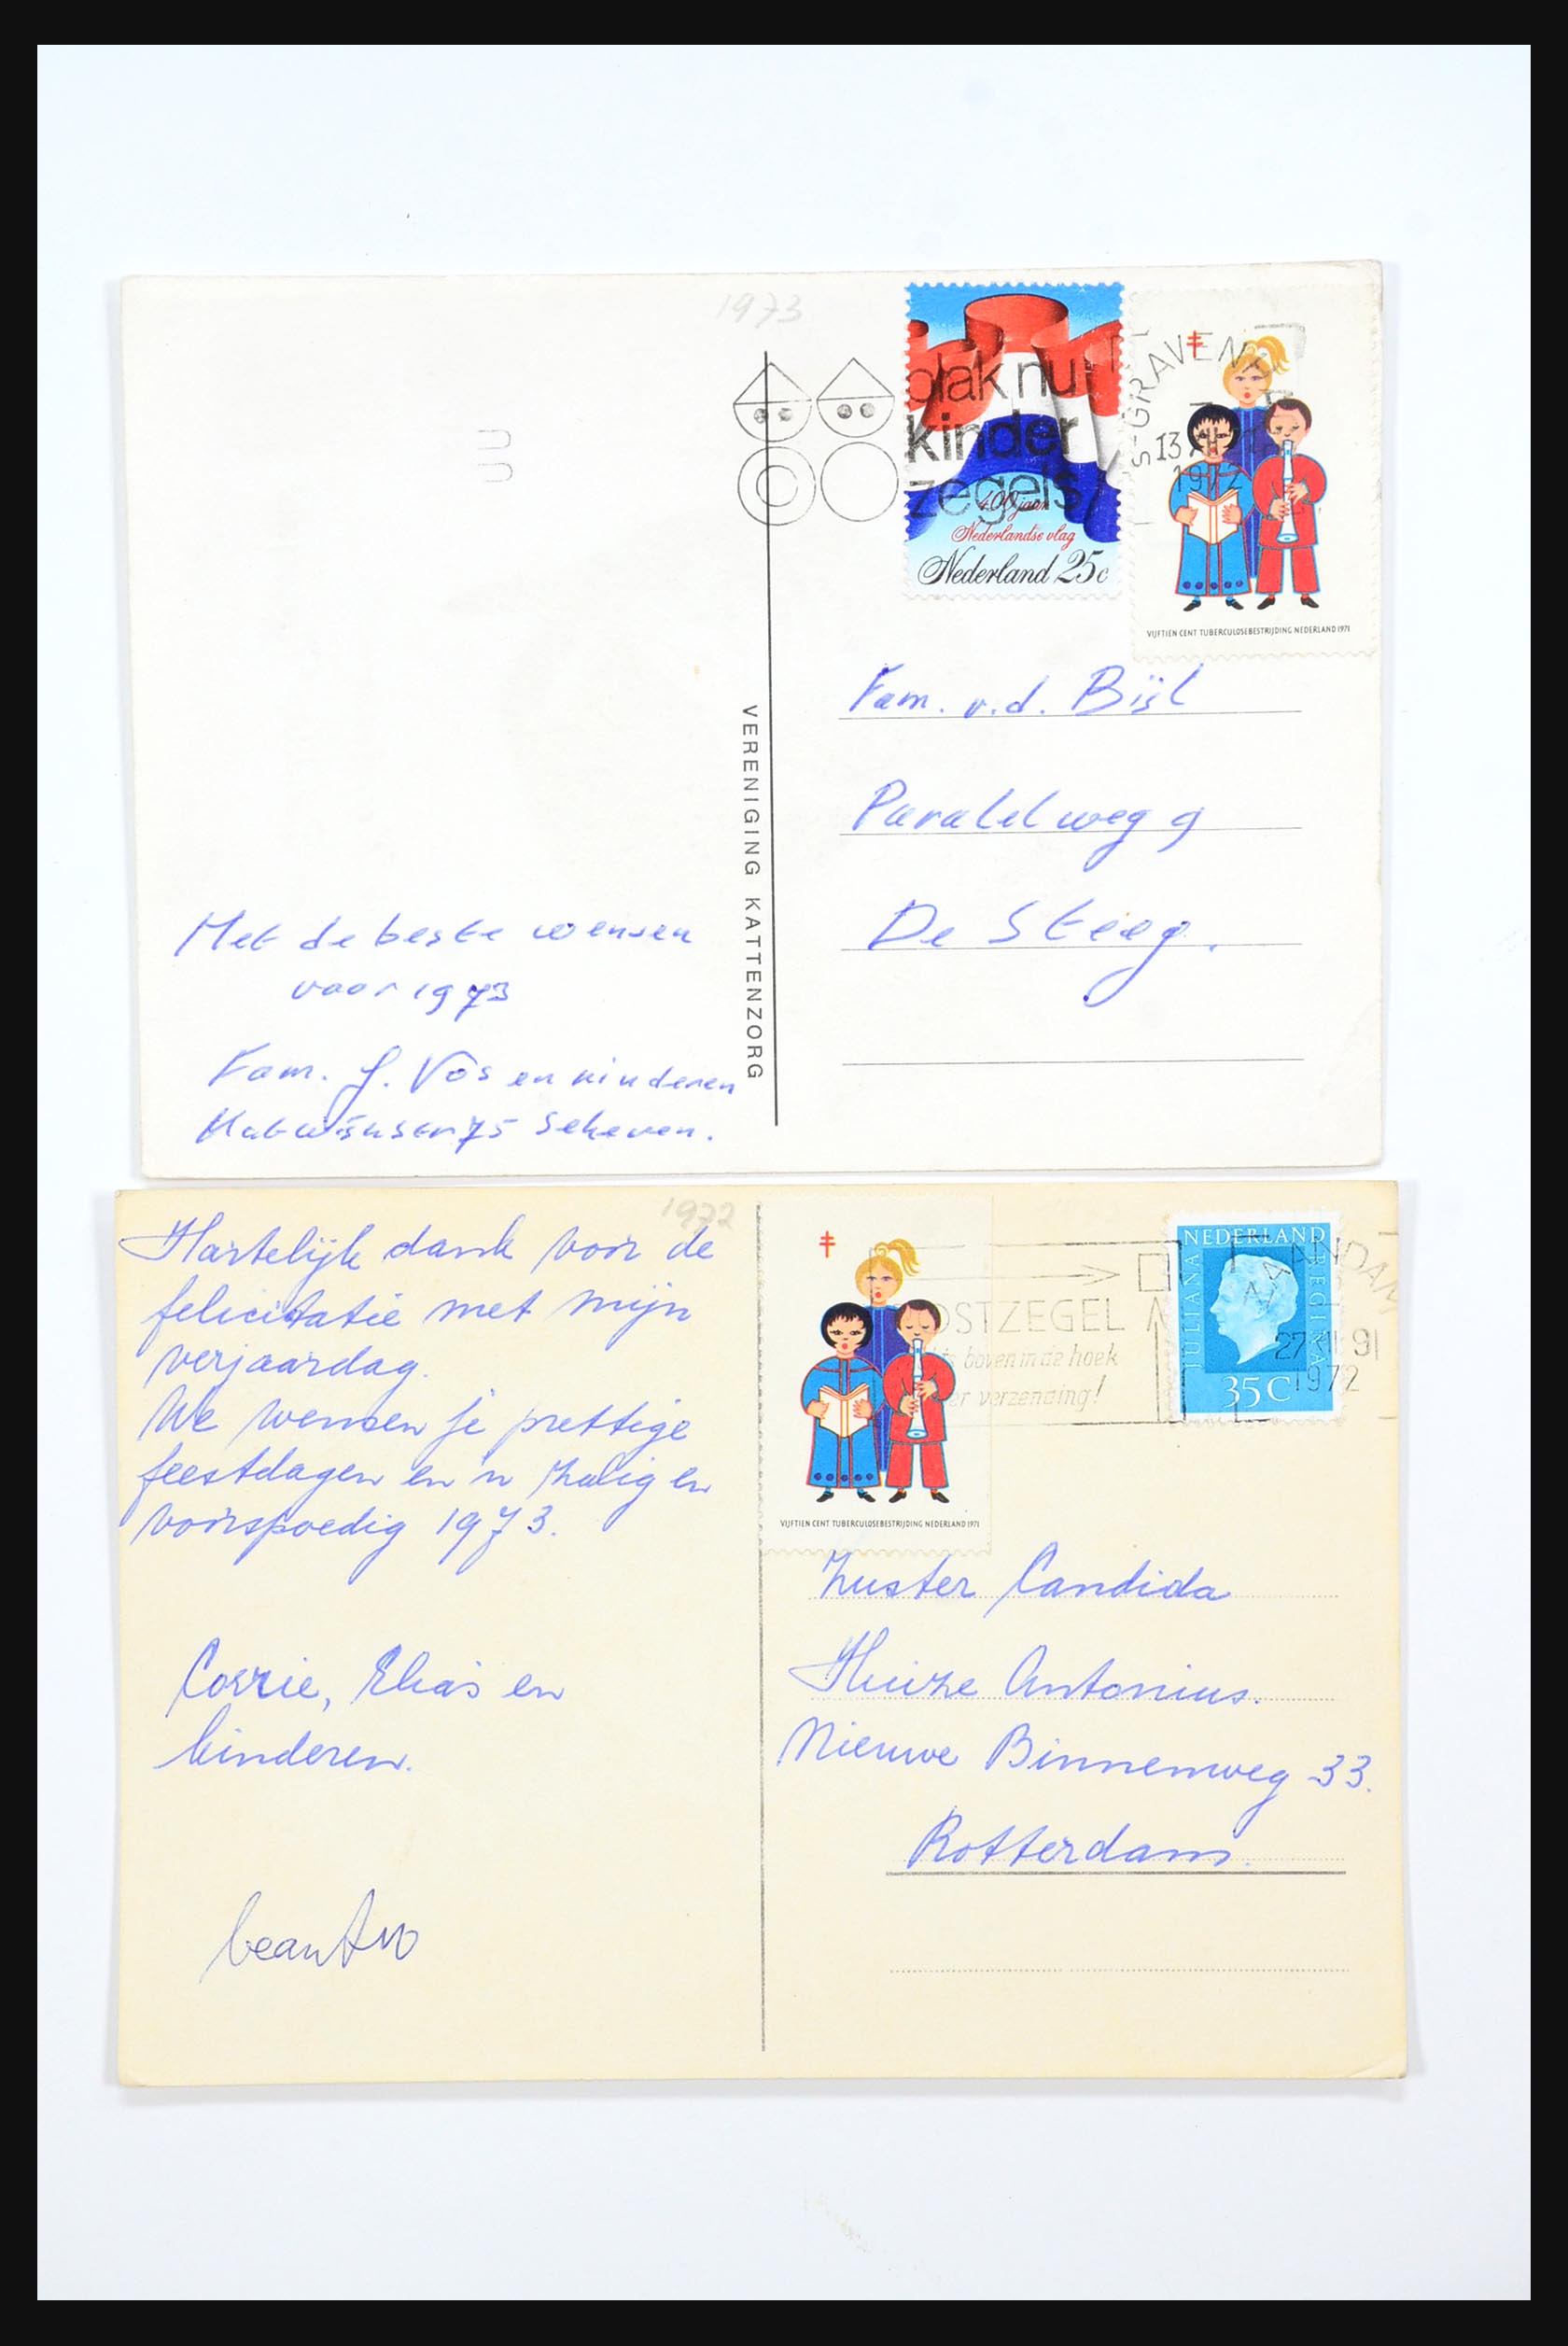 1973
plak nu
kinder
zegels
400 jaar
Nederlandse vlag
Nederland 25c
S-GRAVENH
13
1972
VIJFTIEN CENT TUBERCULOSEBESTRIJDING NEDERLAND 1971
Fam. v.d. Bijl
Paralelweg 9
De Steeg.
VERENIGING KATTENZORG
Met de beste wensen
voor 1973
Fam. J. Vos en kinderen
Katwijkstr 75 Scheven.
1972
Hartelijk dank voor de
felicitatie met mijn
verjaardag.
We wensen je prettige
feestdagen en 'n zalig en
voorspoedig 1973.
Corrie, Elias en
kinderen.
beantw
VIJFTIEN CENT TUBERCULOSEBESTRIJDING NEDERLAND 1971
OSTZEGEL
boven in de hoek
er verzending!
NEDERLAND
JULIANA
REGINA
35C
ZAANDAM
27 XII 91
1972
Zuster Candida
Huize Antonius.
Nieuwe Binnenweg 33.
Rotterdam.